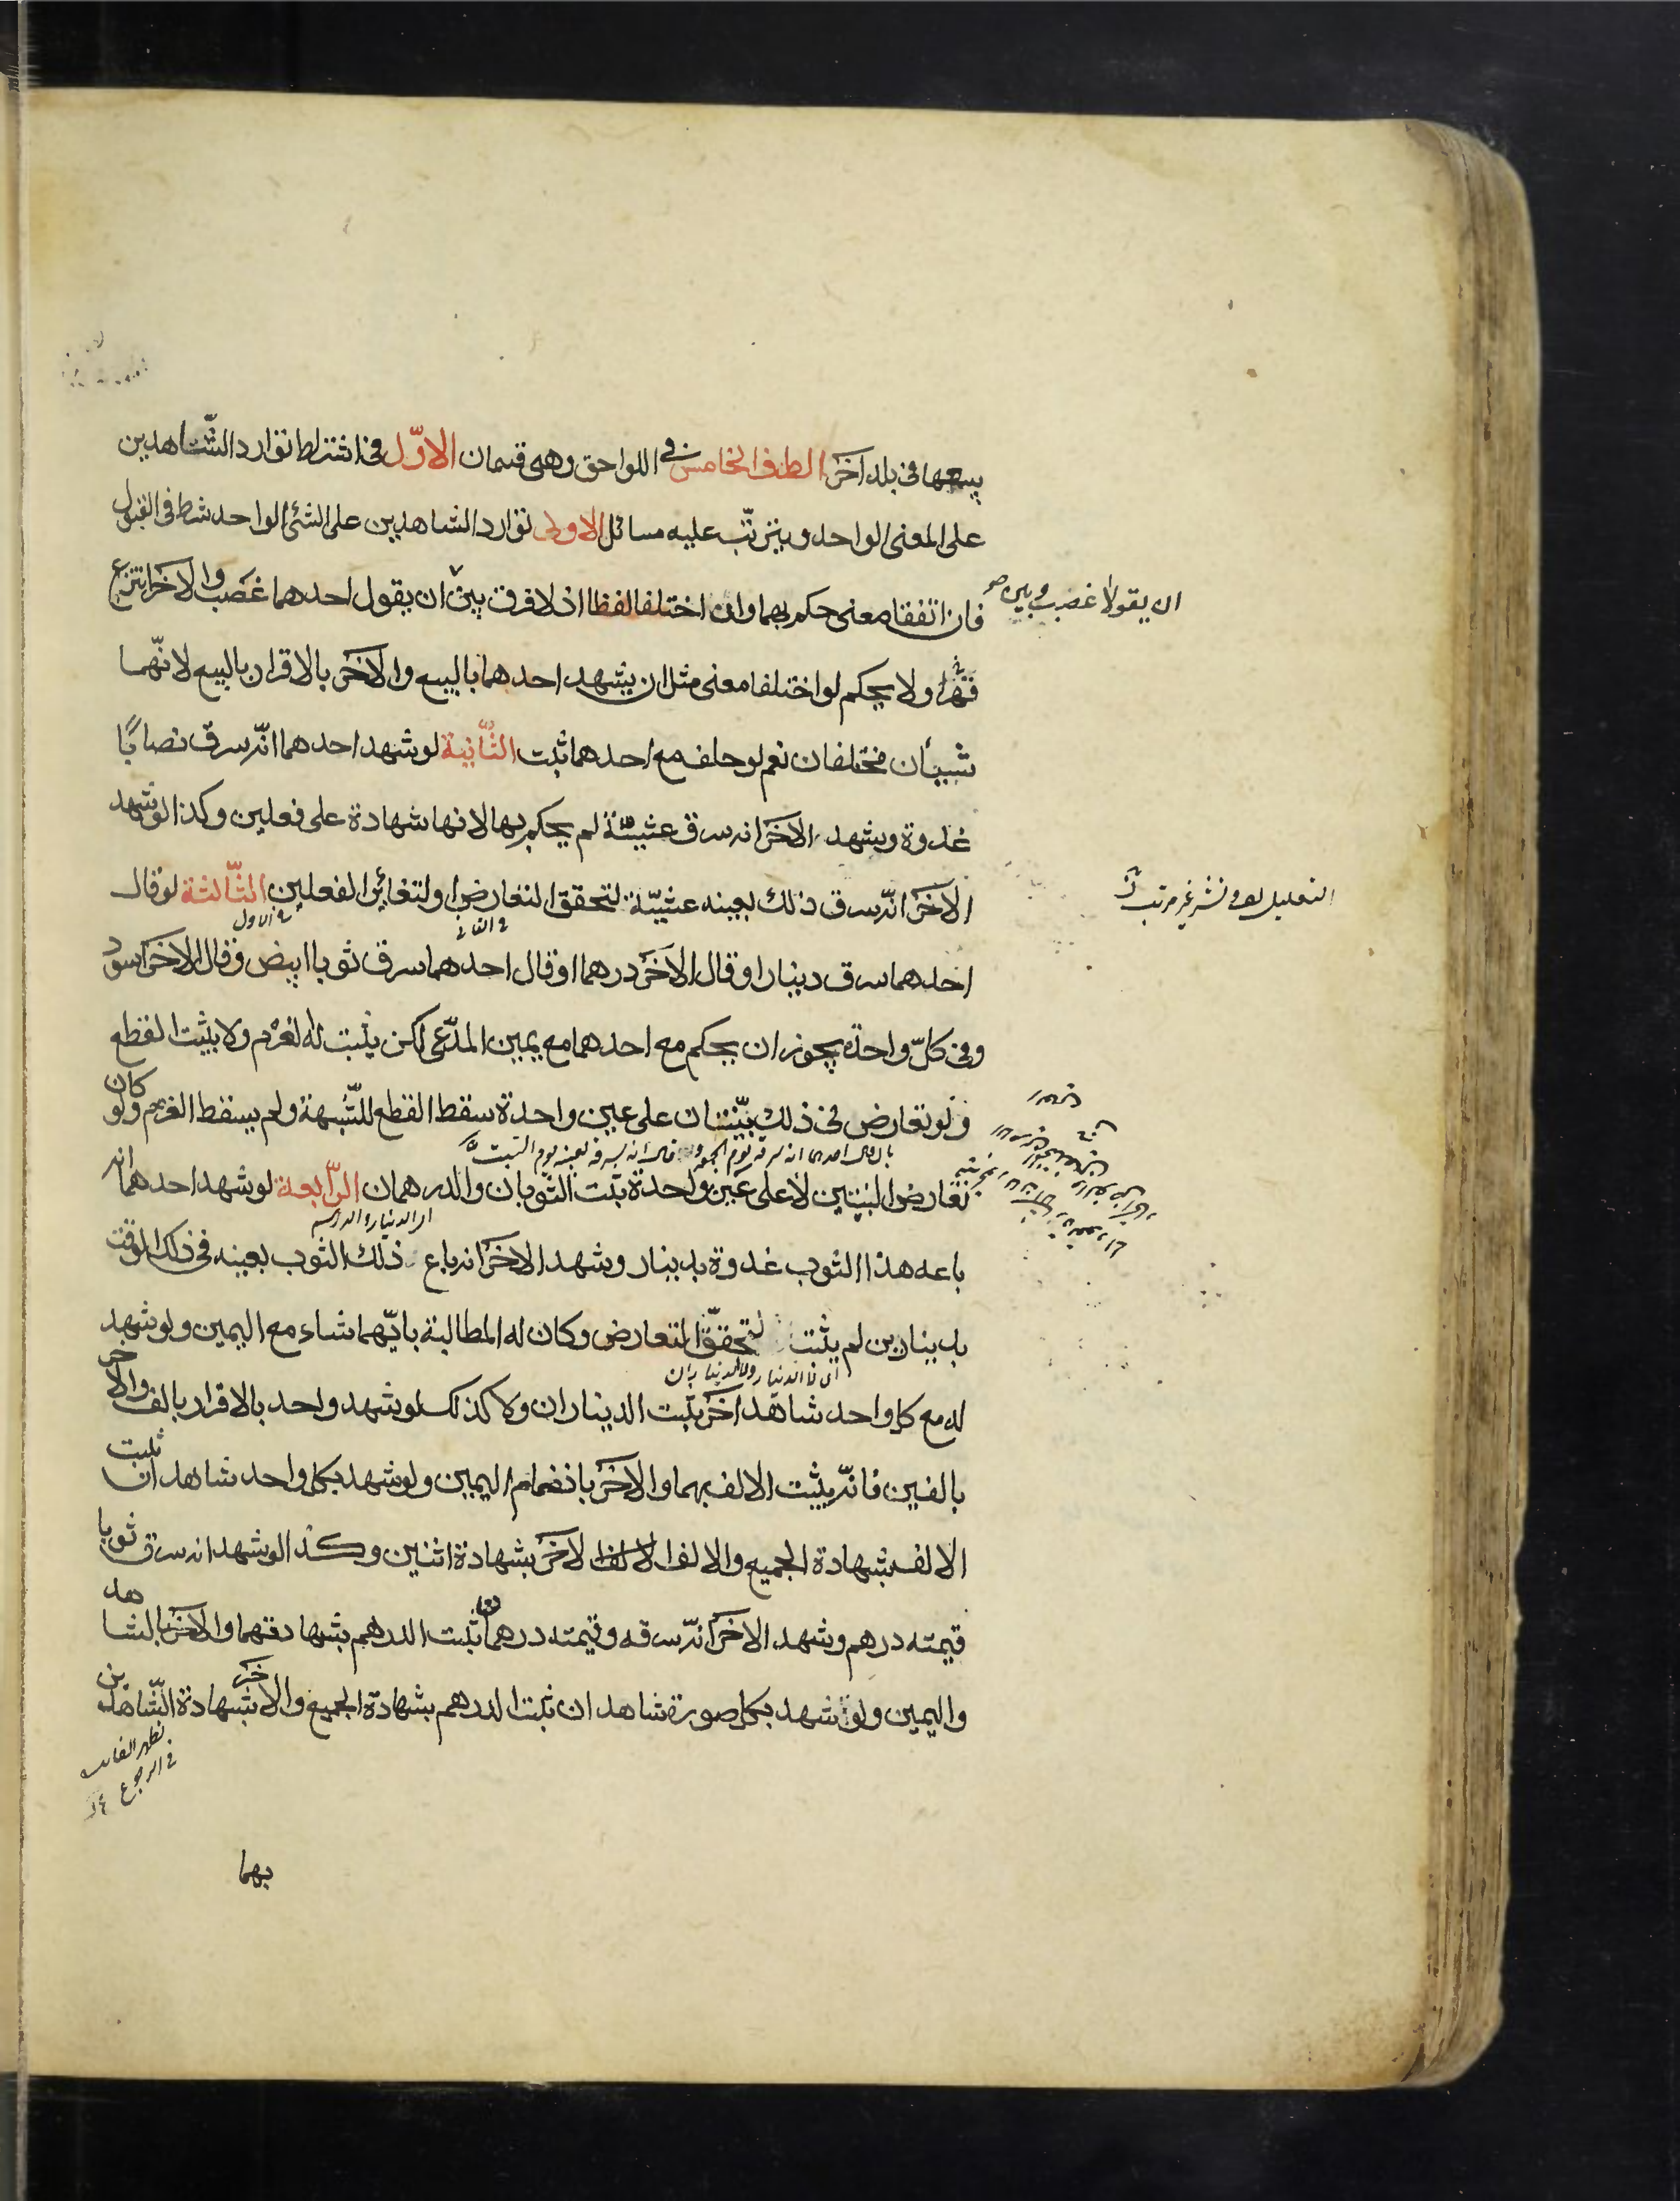 يسمعها فى بلد آخر الطرف الخامس فى اللواحق وهى قسمان الاوّل فى اشتراط توارد الشّاهدين
على المعنى الواحد ويترتّب عليه مسائل الاولى توارد الشاهدين على الشئ الواحد شرط فى القبول
فان اتفقا معنى حكم بهما وان اختلفا لفظا اذ لا فرق بين ان يقول احدهما غصب والآخر انتزع
ان يقولا غصب وبين صح
قهرا ولا يحكم لو اختلفا معنى مثل ان يشهد احدهما بالبيع والآخر بالاقرار بالبيع لانّهما
شيئان مختلفان نعم لو حلف مع احدهما ثبت الثّانية لو شهد احدهما انّه سرق نصابًا
غدوة وشهد الآخر انه سرق عشيّة لم يحكم بها لانها شهادة على فعلين وكذا لو شهد
الآخر انّه سرق ذلك بعينه عشيّة لتحقق التعارض او لتغاير الفعلين الثّالثة لو قال
فى الثانى
فى الاول
التعليل لف ونشر غير مرتب
احدهما سرق دينارا وقال الآخر درهما او قال احدهما سرق ثوبا ابيض وقال الآخر اسود
وفى كلّ واحدة يجوز ان يحكم مع احدهما مع يمين المدّعى لكن يثبت له الغرم ولا يثبت القطع
ولو تعارض فى ذلك بيّنتان على عين واحدة سقط القطع للشّبهة ولم يسقط الغرم ولو كان
بان قال احدهما انه سرقه يوم الجمعة وقال انه سرقه بعينه يوم السبت
تعارض البيّنتين لا على عين واحدة ثبت الثوبان والدرهمان الرّابعة لو شهد احدهما انه
او الدينار والدرهم
باعه هذا الثوب غدوة بدينار وشهد الآخر انه باع ذلك الثوب بعينه فى ذلك الوقت
بدينارين لم يثبت لتحقق التعارض وكان له المطالبة بايّهما شاء مع اليمين ولو شهد
له مع كل واحد شاهد آخر ثبت الديناران ولا كذلك لو شهد واحد بالاقرار بالف والآخر
بالفين فانّه يثبت الالف بهما والآخر بانضمام اليمين ولو شهد بكل واحد شاهدان ثبت
الالف بشهادة الجميع والالف الآخر بشهادة اثنين وكذا لو شهد انه سرق ثوبا
قيمته درهم وشهد الآخر انّه سرقه وقيمته درهمان ثبت الدرهم بشهادتهما والآخر بالشاهد
واليمين ولو شهد بكل صورة شاهدان ثبت الدرهم بشهادة الجميع والآخر بشهادة الشّاهدين
فى الرجوع
بهما